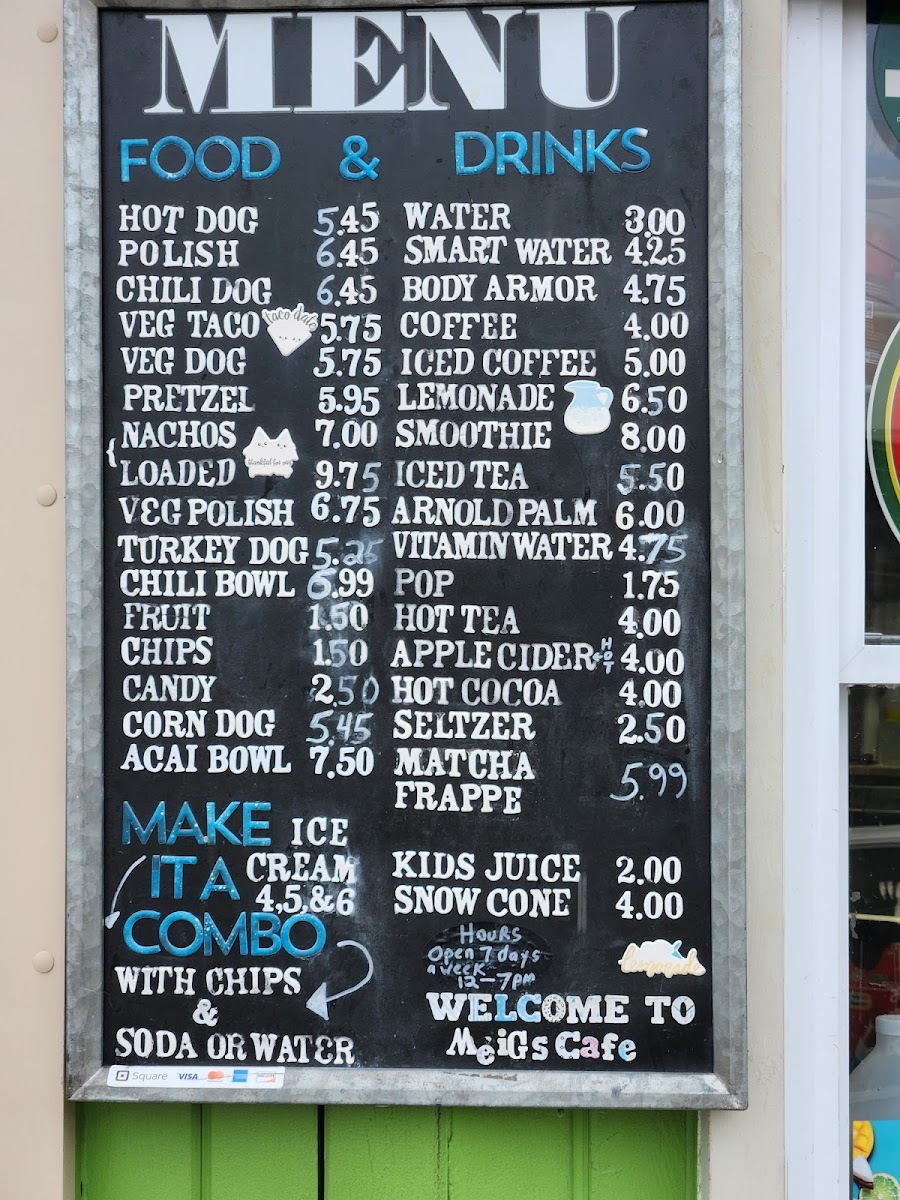 MENU
FOOD & DRINKS
HOT DOG 5.45
POLISH 6.45
CHILI DOG 6.45
VEG TACO 5.75
taco
VEG DOG 5.75
PRETZEL 5.95
NACHOS 7.00
LOADED 9.75
thankful for
VEG POLISH 6.75
TURKEY DOG 5.25
CHILI BOWL 6.99
FRUIT 1.50
CHIPS 1.50
CANDY 2.50
CORN DOG 5.45
ACAI BOWL 7.50
WATER 3.00
SMART WATER 4.25
BODY ARMOR 4.75
COFFEE 4.00
ICED COFFEE 5.00
LEMONADE 6.50
SMOOTHIE 8.00
ICED TEA 5.50
ARNOLD PALM 6.00
VITAMIN WATER 4.75
POP 1.75
HOT TEA 4.00
APPLE CIDER HOT 4.00
HOT COCOA 4.00
SELTZER 2.50
MATCHA
FRAPPE 5.99
KIDS JUICE 2.00
SNOW CONE 4.00
ICE
CREAM
4,5,&6
MAKE
IT A
COMBO
WITH CHIPS
&
SODA OR WATER
HOURS
Open 7 days
a week
12-7pm
lemonade
WELCOME TO
MeiGs Cafe
Square VISA